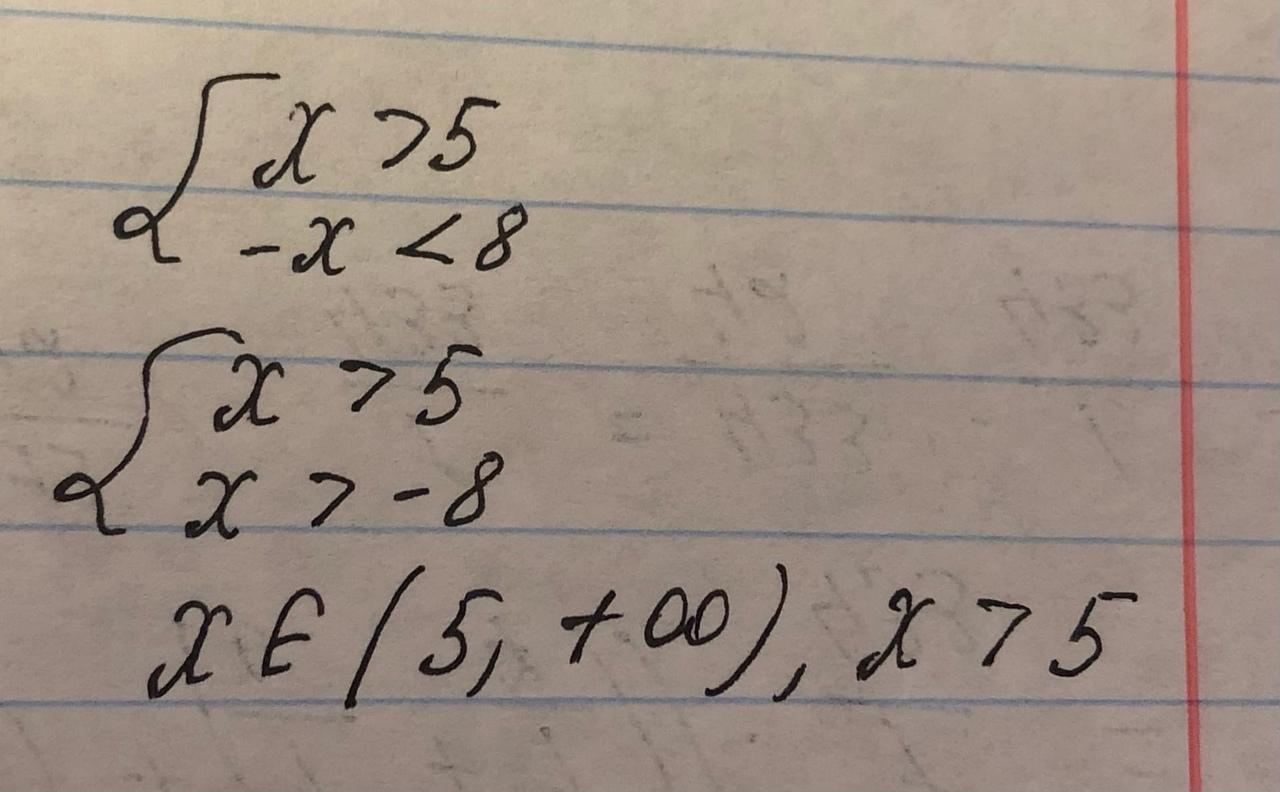 x > 5
-x < 8
x > 5
x > -8
x ∈ (5, +∞), x > 5